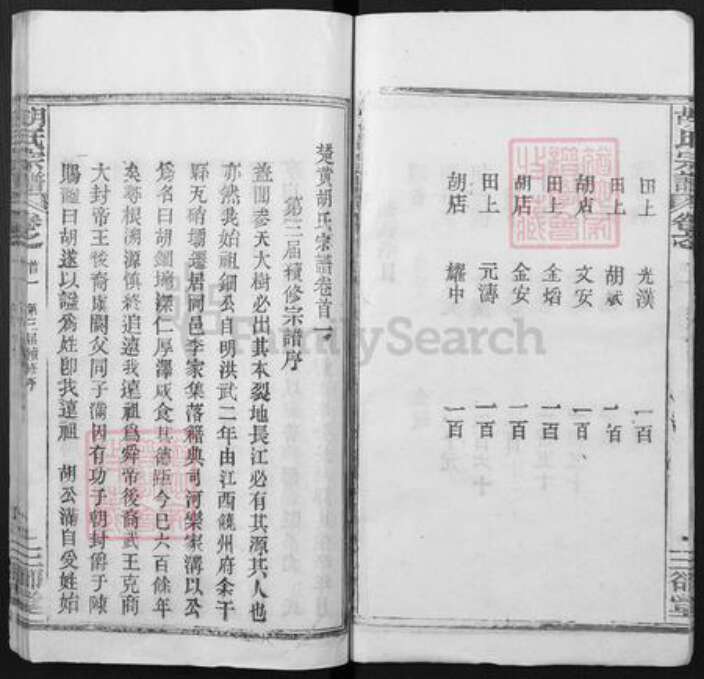 胡氏宗譜
田上 光漢 一百
田上 胡斌 一百
胡店 文安 一百
田上 金焰 一百
胡店 金安 一百
田上 元濤 一百
胡店 耀中 一百
三
楚黄胡氏宗譜卷首一
第三届續修宗譜序
蓋聞參天大樹必出其本裂地長江必有其源其人也
亦然我始祖鈿公自明洪武二年由江西饒州府余干
縣瓦硝壩遷居岡邑李家集落籍典司河欒家溝以公
爲名曰胡鈿塆深仁厚澤咸食其德距今已六百餘年
矣尋根溯源慎終追遠我遠祖爲舜帝後裔武王克商
大封帝王後裔虞閼父同子滿因有功于朝封爵于陳
賜謚曰胡遂以謚爲姓即我遠祖 胡公滿自受姓始
胡氏宗譜
首一 第三届續修序
三
FamilySearch